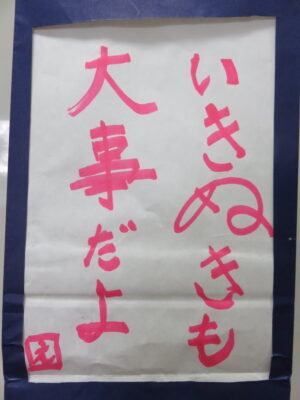 いきぬきも
大事だよ